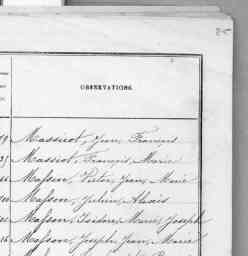 85
OBSERVATIONS.
Massicot, Jean, François
Massicot, François, Marie
Masson, Victor, Jean, Marie
Masson, Julien, Alexis
Masson, Isidore, Marie, Joseph
Masson, Joseph, Jean, Marie